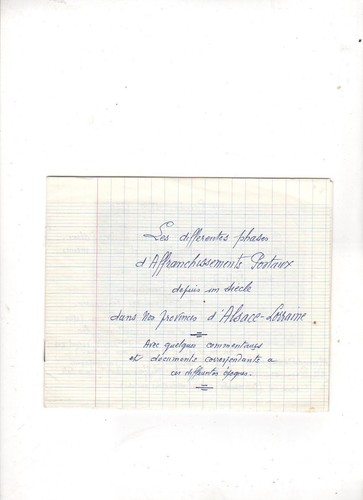 Les differentes phases
d'Affranchissements Postaux
depuis un siecle
dans nos provinces d'Alsace-Lorraine
Avec quelques commentaires
et documents correspondants a
ces differentes époques.